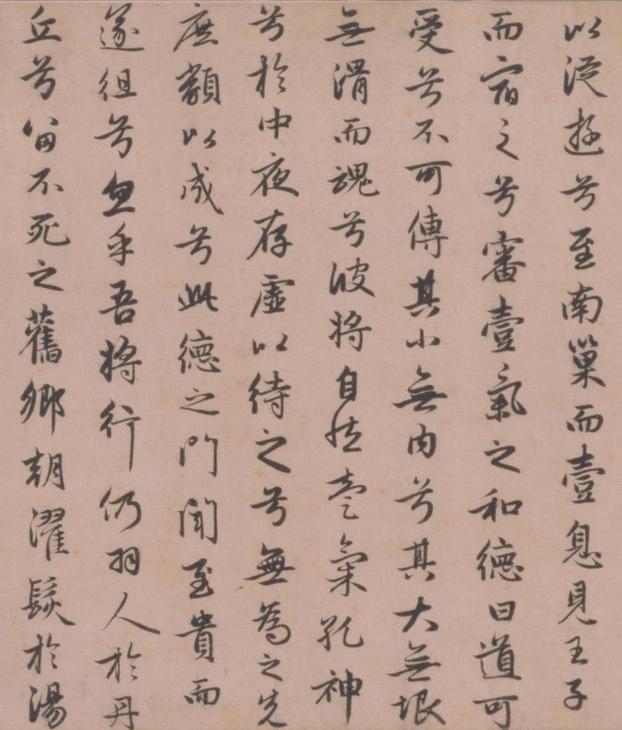 以從遊兮至南巢而壹息見王子
而宿之兮審壹氣之和德曰道可
受兮不可傳其小無內兮其大無垠
無滑而魂兮彼將自然壹氣孔神
兮於中夜存虛以待之兮無為之先
庶類以成兮此德之門聞至貴而
遂徂兮忽乎吾將行仍羽人於丹
丘兮留不死之舊鄉朝濯髮於湯